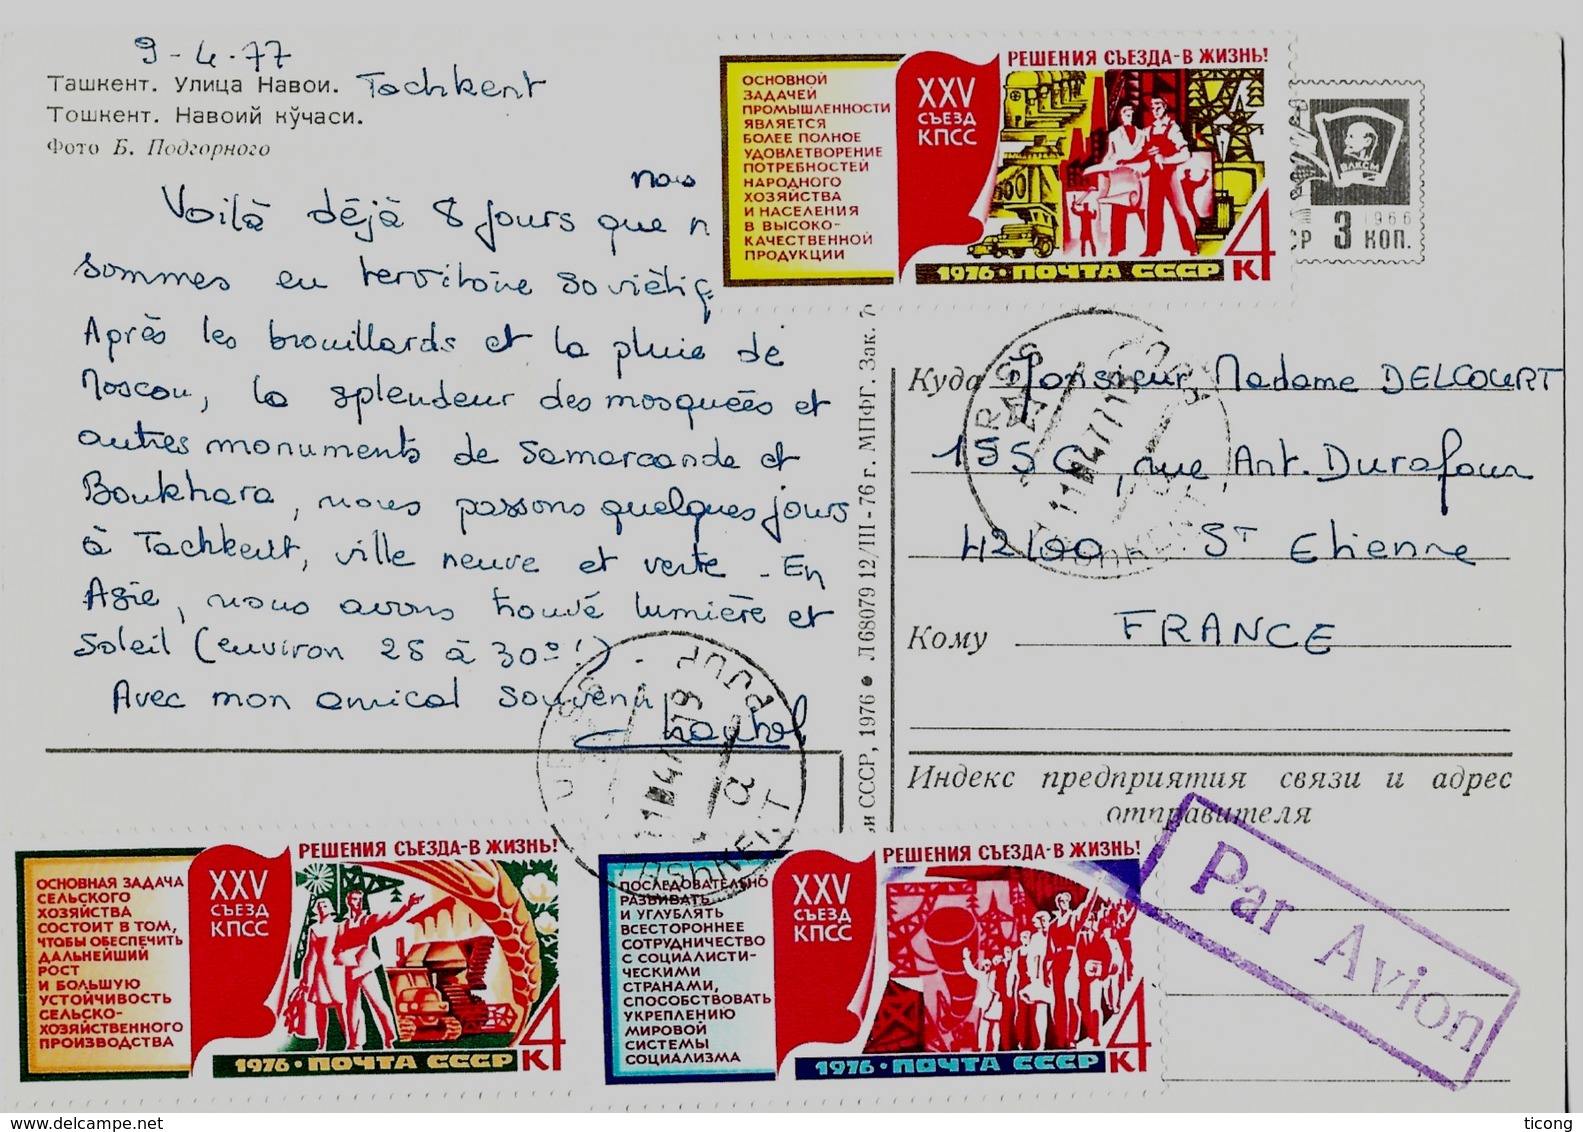 9-4-77
Ташкент. Улица Навои. Tachkent
Тошкент. Навоий кўчаси.
Фото Б. Подгорного
nos
Voilà déjà 8 jours que n
sommes en territoire soviétiq
Après les brouillards et la pluie de
Moscou, la splendeur des mosquées et
autres monuments de Samarcande et
Boukhara, nous passons quelques jours
à Tachkent, ville neuve et verte - En
Asie, nous avons trouvé lumière et
soleil (environ 28 à 30°!).
Avec mon amical souvenir
РЕШЕНИЯ СЪЕЗДА-В ЖИЗНЬ!
ОСНОВНОЙ
ЗАДАЧЕЙ
ПРОМЫШЛЕННОСТИ
ЯВЛЯЕТСЯ
БОЛЕЕ ПОЛНОЕ
УДОВЛЕТВОРЕНИЕ
ПОТРЕБНОСТЕЙ
НАРОДНОГО
ХОЗЯЙСТВА
И НАСЕЛЕНИЯ
В ВЫСОКО-
КАЧЕСТВЕННОЙ
ПРОДУКЦИИ
XXV
СЪЕЗД
КПСС
1976·ПОЧТА СССР
4
К
ВЛКСМ
1966
СР 3 КОП.
URSS
TASHKENT
Куда Monsieur, Madame DELCOURT
155 C, rue Ant. Durafour
42100 St Etienne
Кому FRANCE
Индекс предприятия связи и адрес
отправителя
Par Avion
и СССР, 1976 ● Л68079 12/III-76 г. МПФГ. Зак. 7
URSS
TASHKENT
РЕШЕНИЯ СЪЕЗДА-В ЖИЗНЬ!
ОСНОВНАЯ ЗАДАЧА
СЕЛЬСКОГО
ХОЗЯЙСТВА
СОСТОИТ В ТОМ,
ЧТОБЫ ОБЕСПЕЧИТЬ
ДАЛЬНЕЙШИЙ
РОСТ
И БОЛЬШУЮ
УСТОЙЧИВОСТЬ
СЕЛЬСКО-
ХОЗЯЙСТВЕННОГО
ПРОИЗВОДСТВА
XXV
СЪЕЗД
КПСС
1976·ПОЧТА СССР
4
К
РЕШЕНИЯ СЪЕЗДА-В ЖИЗНЬ!
ПОСЛЕДОВАТЕЛЬНО
РАЗВИВАТЬ
И УГЛУБЛЯТЬ
ВСЕСТОРОННЕЕ
СОТРУДНИЧЕСТВО
С СОЦИАЛИСТИ-
ЧЕСКИМИ
СТРАНАМИ,
СПОСОБСТВОВАТЬ
УКРЕПЛЕНИЮ
МИРОВОЙ
СИСТЕМЫ
СОЦИАЛИЗМА
XXV
СЪЕЗД
КПСС
1976·ПОЧТА СССР
4
К
Delcampe.net
ticong